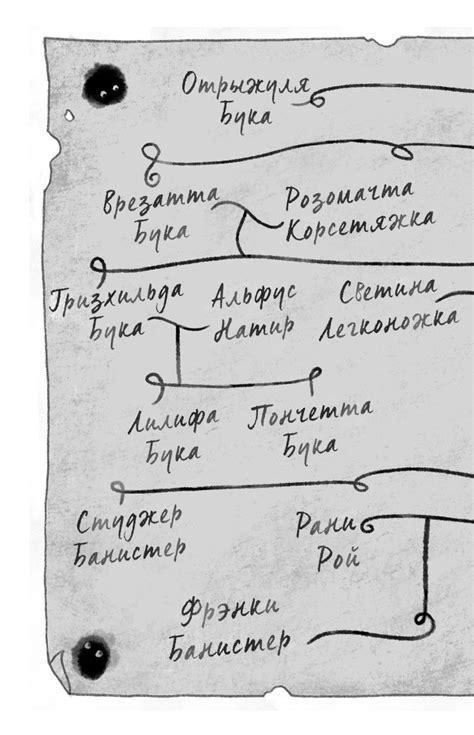 Отрыжуля
Бука
Врезатта
Бука
Розомачта
Корсетяжка
Гризхильда
Бука
Альфус
Натир
Светина
Легконожка
Лилифа
Бука
Пончетта
Бука
Студжер
Банистер
Рани
Рой
Фрэнки
Банистер